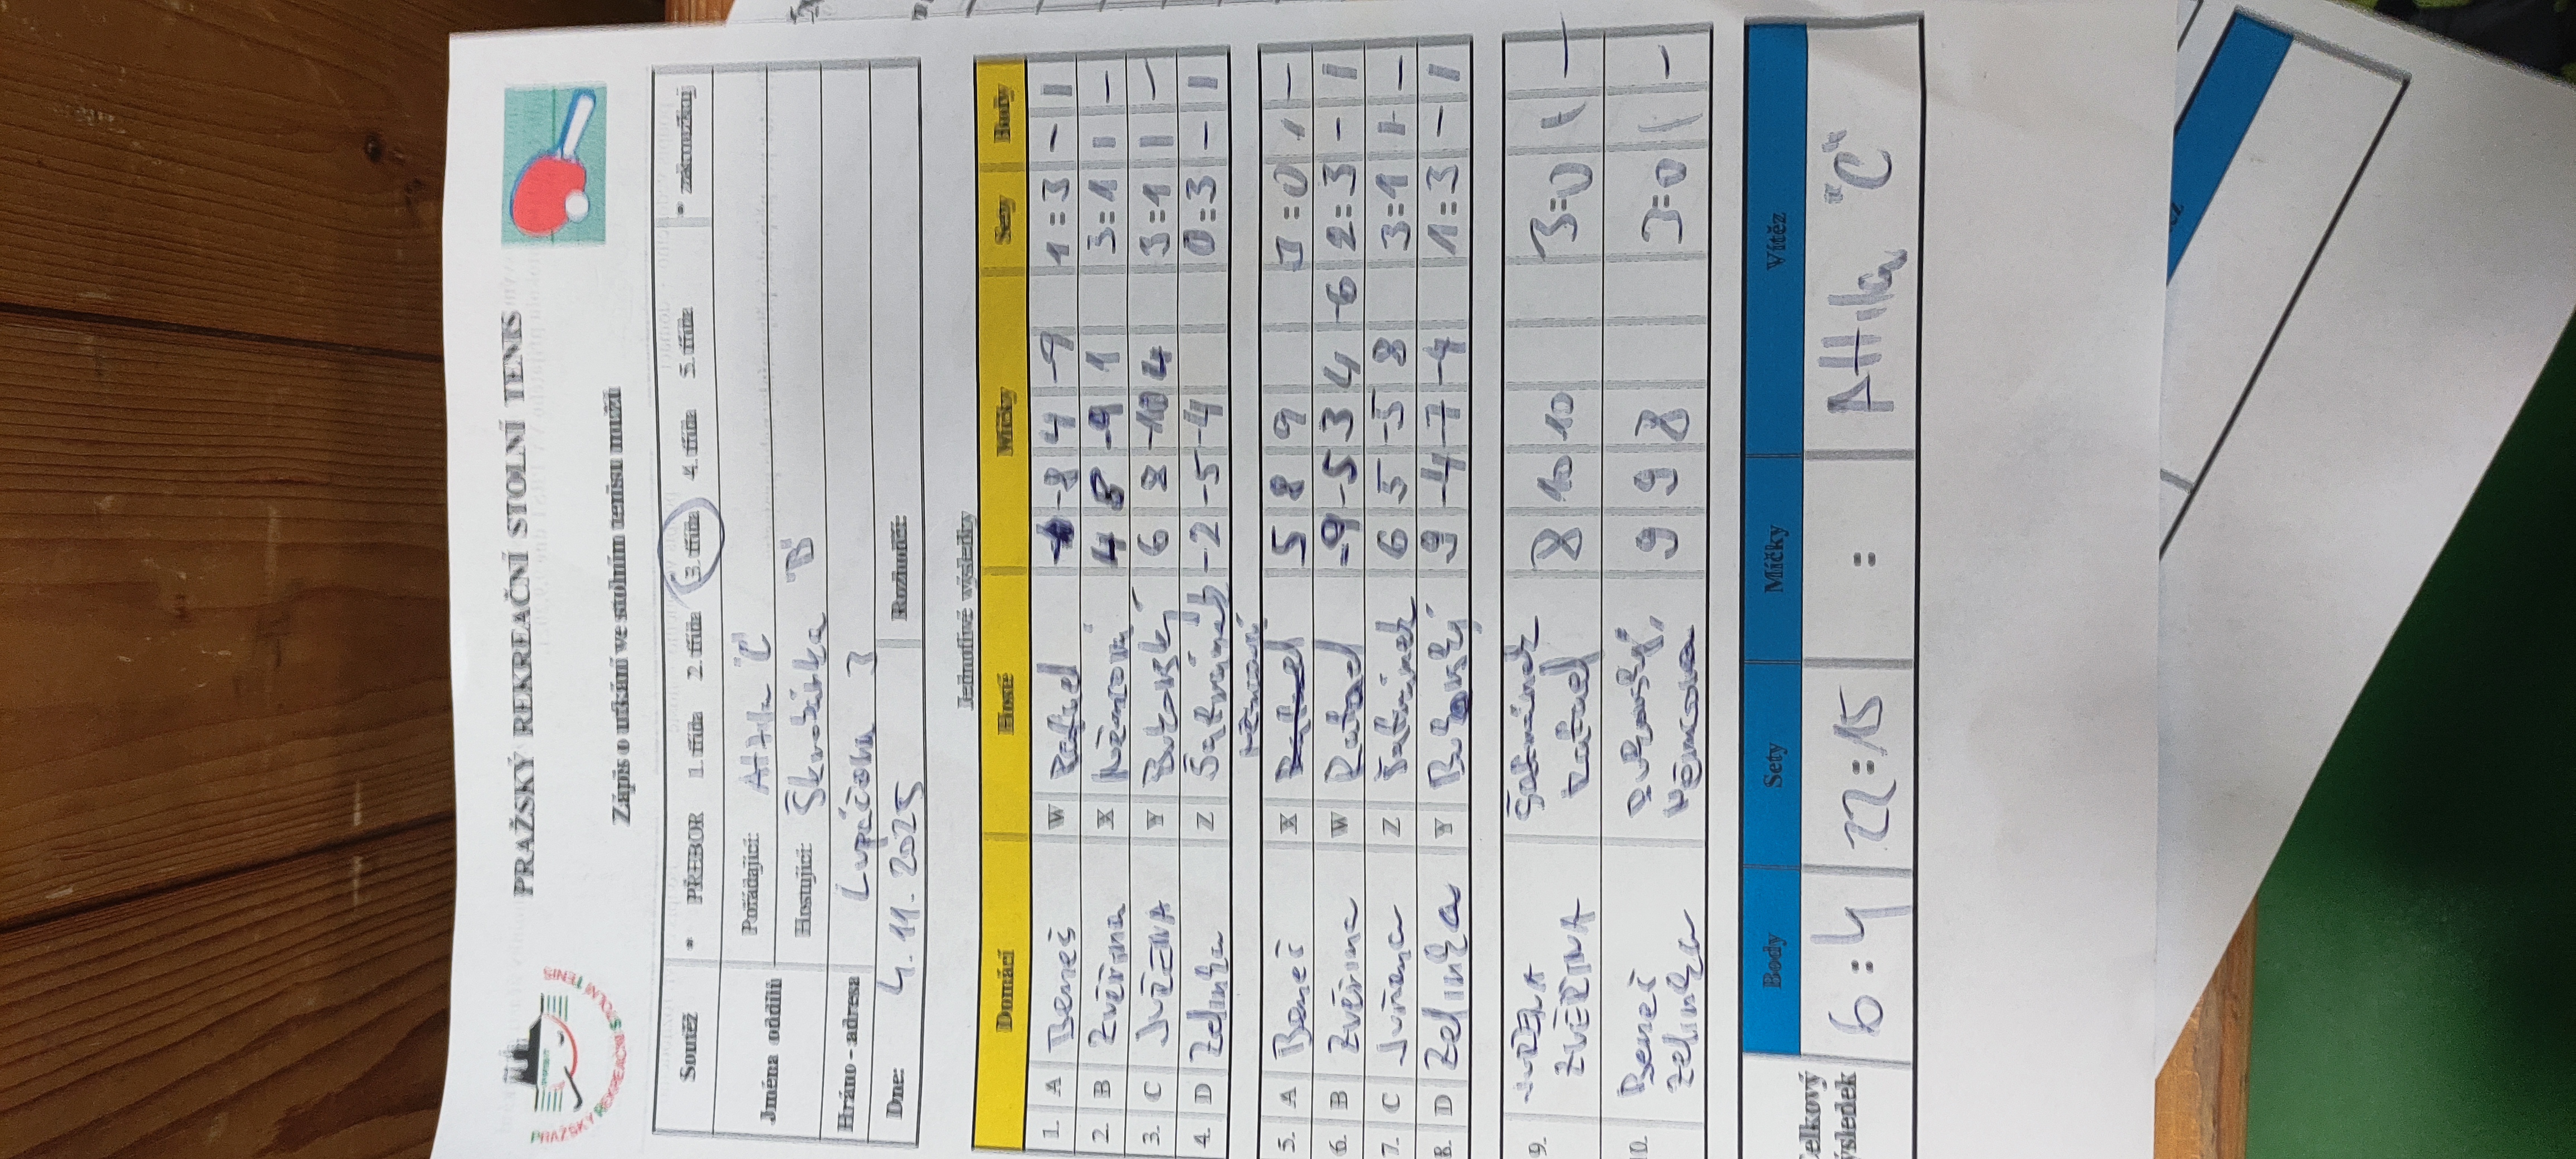 PRAŽSKÝ REKREAČNÍ STOLNÍ TENIS
PRAŽSKÝ REKREAČNÍ STOLNÍ TENIS
Zápis o utkání ve stolním tenisu mužů
Soutěž * PŘEBOR 1. třída 2. třída 3. třída 4. třída 5. třída *
Jména oddílů Pořádající: Attila "C"
Hostující: Škvorňka "B"
Hráno - adresa Lupáčova 3
Dne: 4.11.2025 Rozhodčí:
Jednotlivé výsledky
Domácí Hosté Míčky Sety Body
1. A Beneš W -8 4 -9 1:3 - 1
2. B Zvěřina X 4 8 -9 1 3:1 1 -
3. C JUŘENA Y 6 8 -10 4 3:1 1 -
4. D Zelinka Z Šatránek -2 -5 -4 0:3 - 1
5. A Beneš X 5 8 9 3:0 1 -
6. B Zvěřina W -9 -5 3 4 -6 2:3 - 1
7. C Juřena Z Šatránek 6 5 -5 8 3:1 1 -
8. D Zelinka Y 9 -4 -7 -4 1:3 - 1
9. JUŘENA Šatránek 8 10 10 3:0 1 -
ZVĚŘINA
10. Beneš 9 9 8 3:0 1 -
Zelinka
Body Sety Míčky Vítěz
Celkový
výsledek 6:4 22:15 : Attila "C"